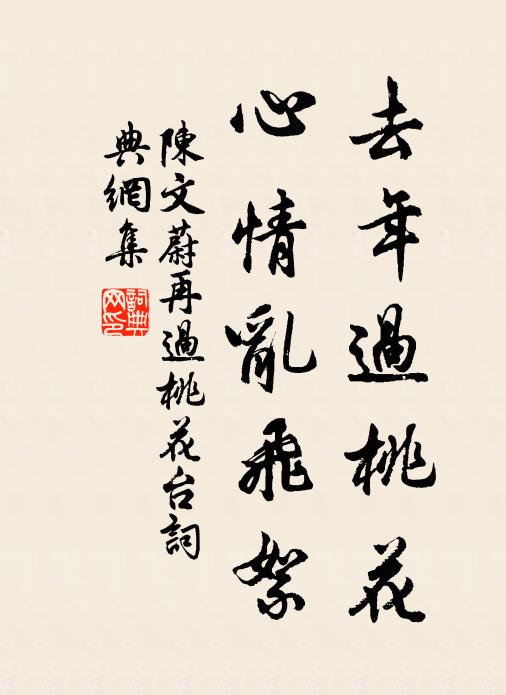 去年過桃花
心情亂飛絮
陳文蔚再過桃花台詞
典網集
詞典網印